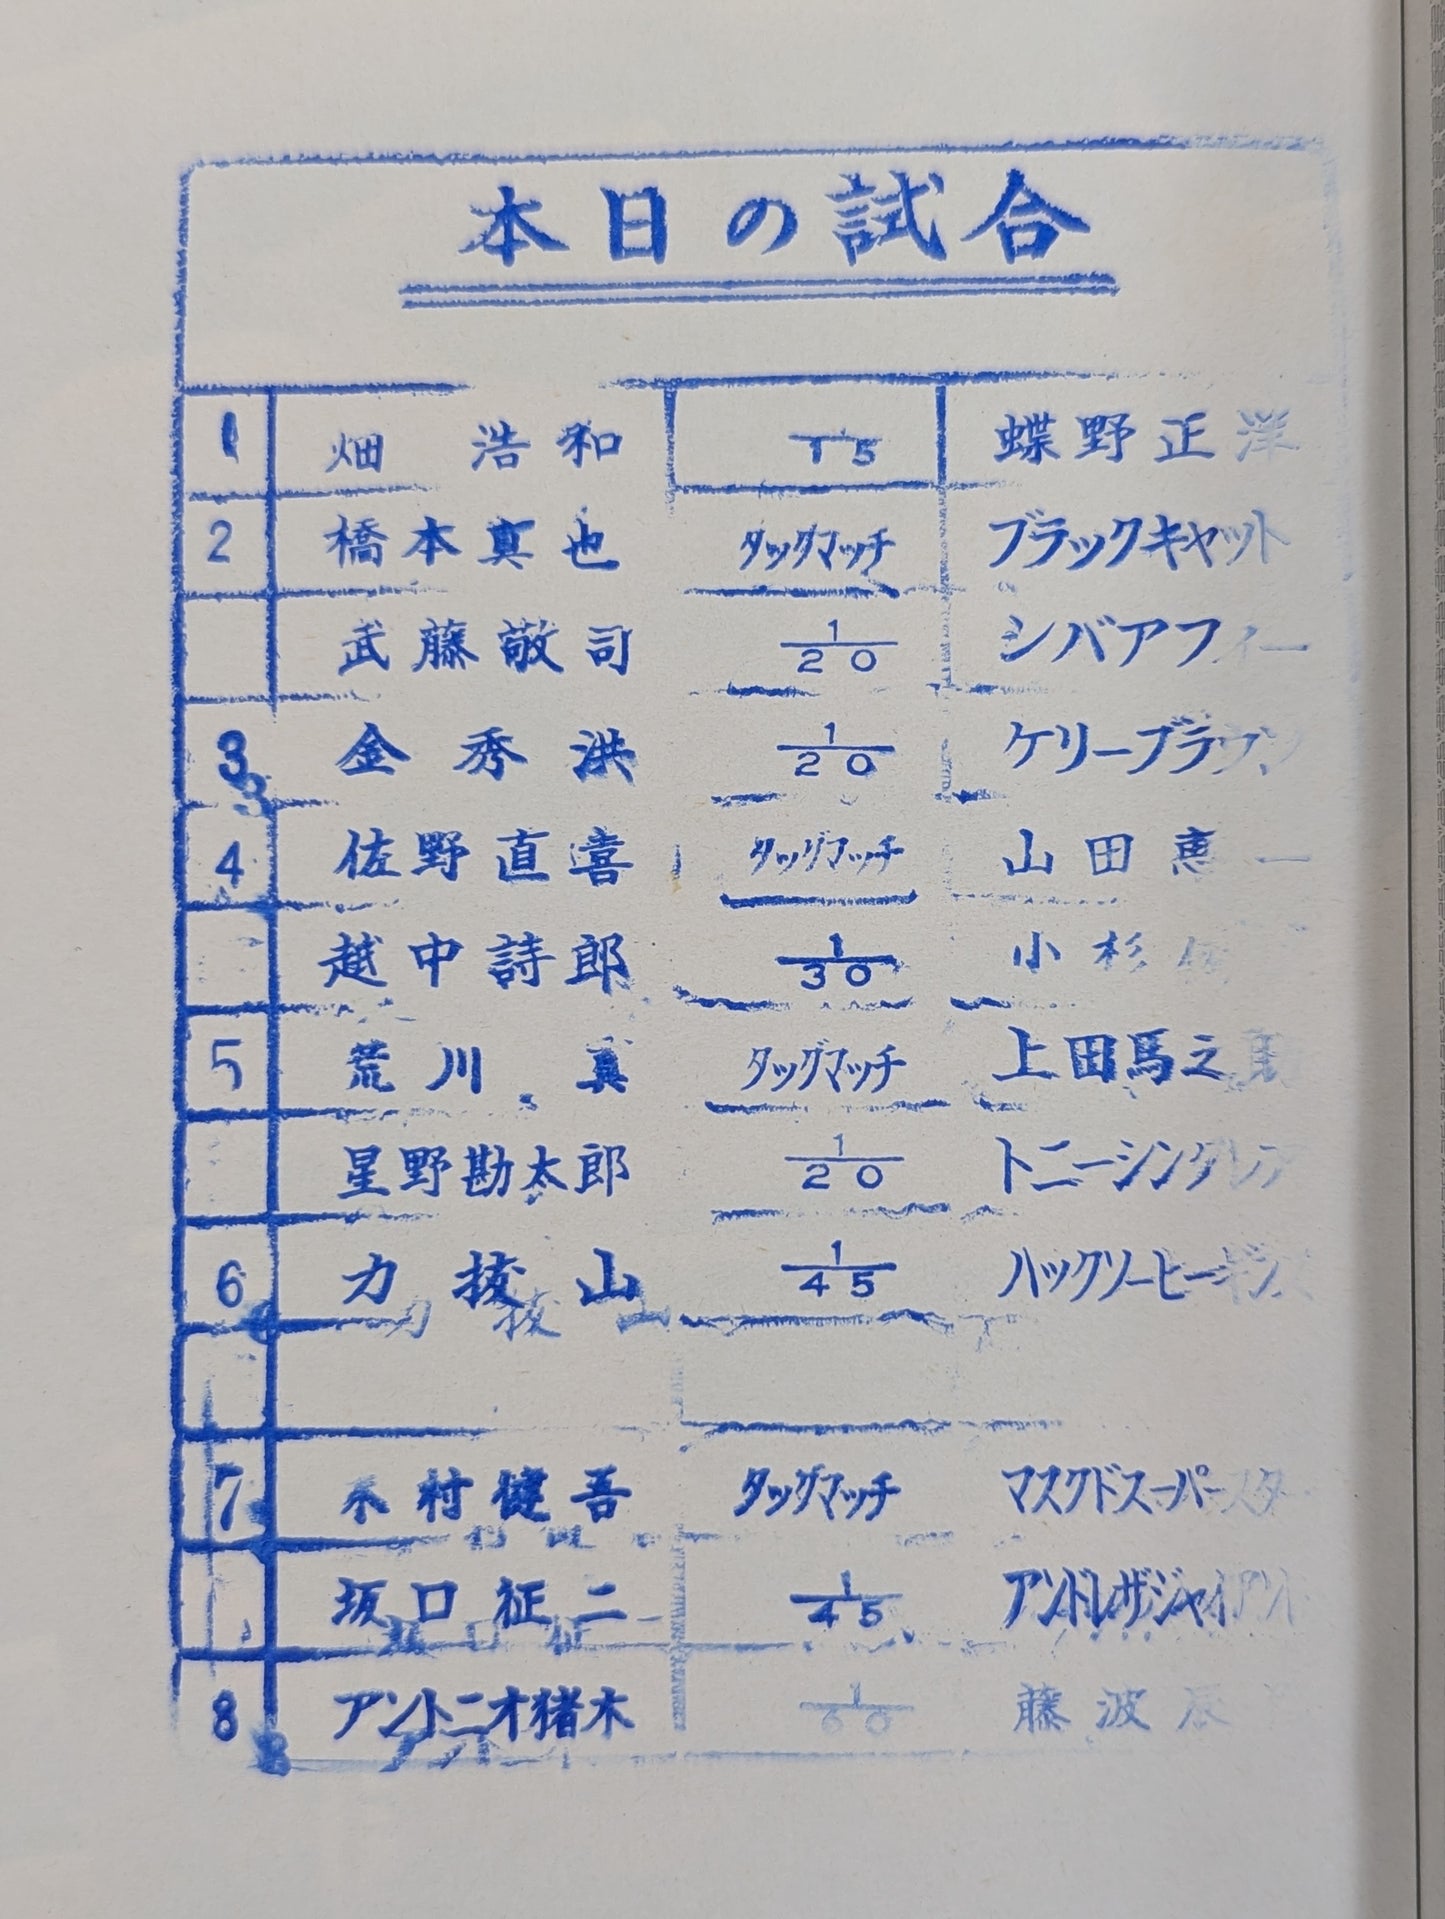 本日の試合
1 畑 浩和 1/15 蝶野正洋
2 橋本真也 タッグマッチ ブラックキャット
武藤敬司 1/20 シバアフィー
3 金秀洪 1/20 ケリーブラウン
4 佐野直喜 タッグマッチ 山田恵一
越中詩郎 1/30 小杉
5 荒川 真 タッグマッチ 上田馬之助
星野勘太郎 1/20 トニーシンク
6 力抜山 1/45 ハックソーヒーギンズ
7 木村健吾 タッグマッチ マスクドスーパースター
坂口征二 1/45 アンドレザジャイアント
8 アントニオ猪木 1/60 藤波辰